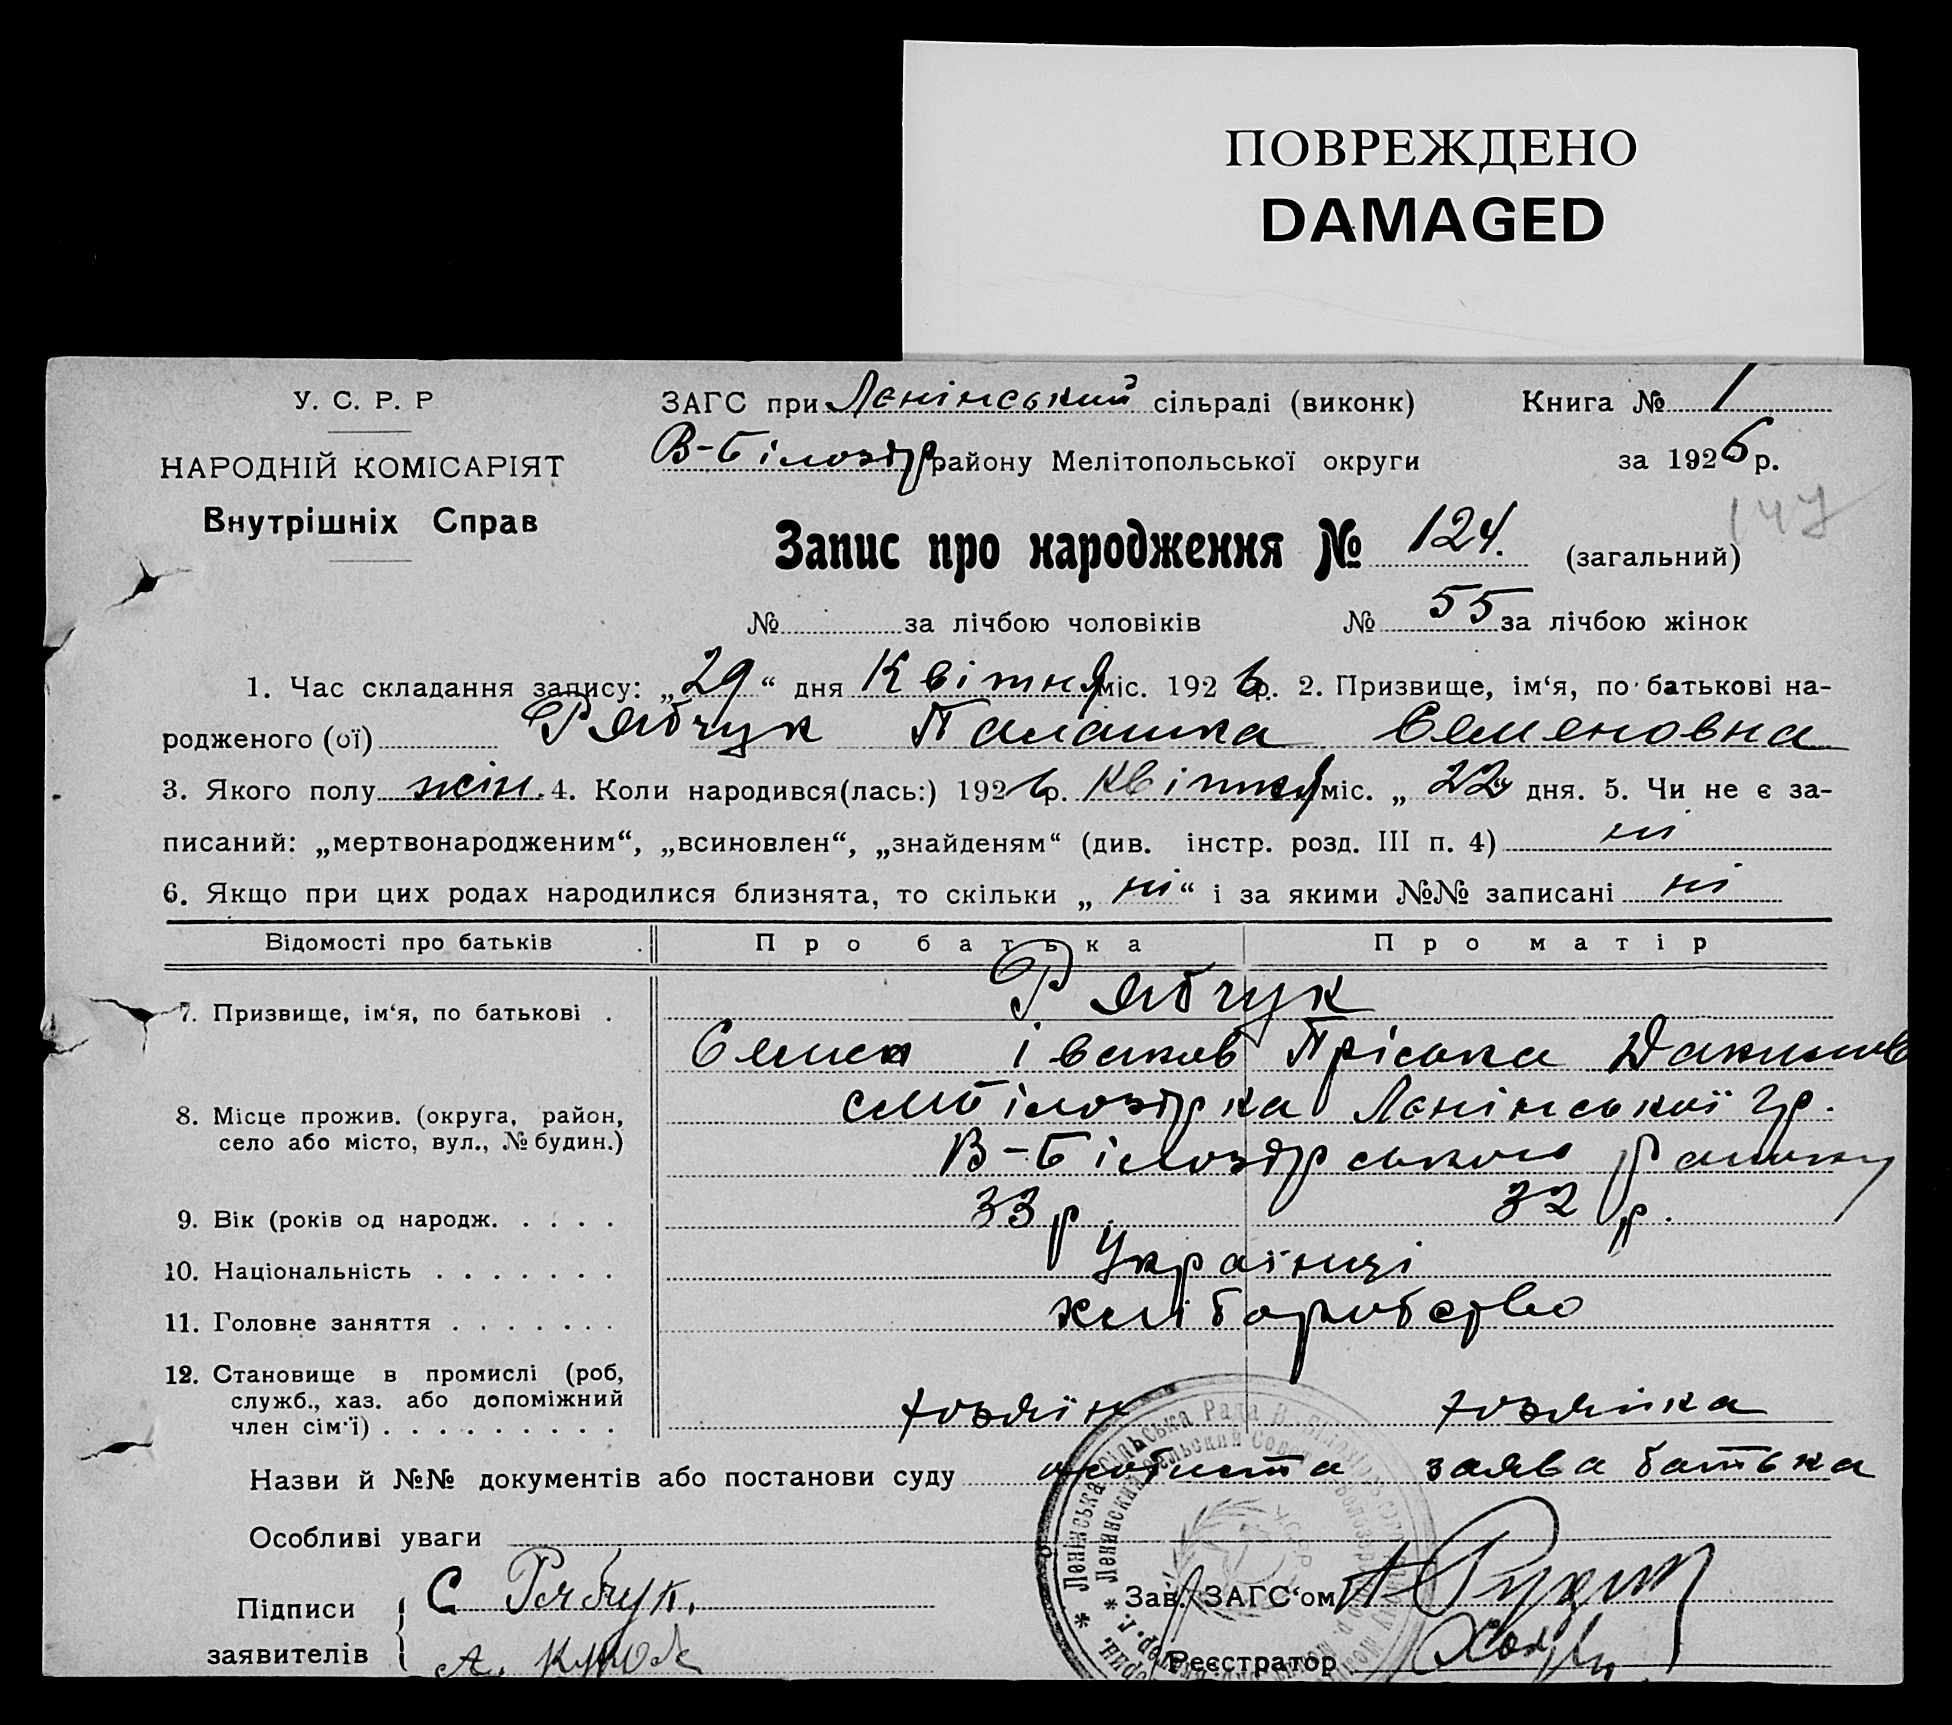 ПОВРЕЖДЕНО
DAMAGED
У. С. Р. Р
ЗАГС при Лєнінський сільраді (виконк) Книга № 1
НАРОДНІЙ КОМІСАРІЯТ
В-Білозір району Мелітопольської округи за 1926 р.
Внутрішніх Справ
147
Запис про народження № 124. (загальний)
№ за лічбою чоловіків № 55 за лічбою жінок
1. Час складання запису: „29“ дня Квітня міс. 1926 р. 2. Призвище, ім‘я, по батькові на-
родженого (ої) Рябчук Палашка Семеновна
3. Якого полу жін. 4. Коли народився(лась:) 1926 р. Квітня міс. „22“ дня. 5. Чи не є за-
писаний: „мертвонародженим“, „всиновлен“, „знайденям“ (див. інстр. розд. III п. 4) ні
6. Якщо при цих родах народилися близнята, то скільки „ні“ і за якими №№ записані ні
Відомості про батьків Про батька Про матір
7. Призвище, ім‘я, по батькові . Рябчук
Семен Іванов Пріська Данилов
8. Місце прожив. (округа, район, село або місто, вул., № будин.) Білозірка Лєнінської гр.
В-Білозірського району
9. Вік (років од народж. . . . . 33 р 32 р.
10. Національність . . . . . . . Українці
11. Головне заняття . . . . . . . хліборобство
12. Становище в промислі (роб, служб., хаз. або допоміжний член сім‘ї) . . . . . . . . . хозяїн хозяйка
Назви й №№ документів або постанови суду заява батька
Особливі уваги
Підписи заявителів С Рябчук.
Зав. ЗАГС‘ом
Реєстратор
* Ленінська Сільська Рада В.
* Ленинский Сельский Совет
У.С.Р.Р.